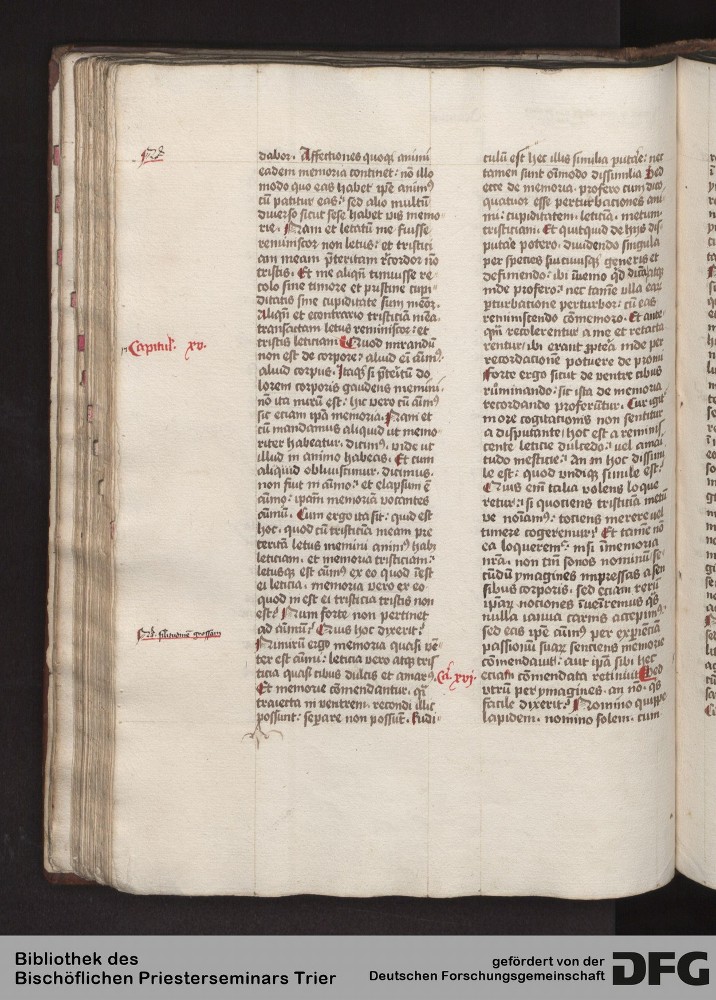 dabor. Affectiones quoqꝫ animi
eadem memoria continet: nō illo
modo quo eas habet ip̄e animꝰ
cū patitur eas: sed alio multū
diuerso sicut sese habet vis memo
rie. Nam et letatū me fuisse
reminiscor non letus: et tristici
am meam p̄teritam recordor nō
tristis. Et me aliqn̄ timuisse re
colo sine timore et pristine cupi
ditatis sine cupiditate sum memor.
Aliqn̄ et econtrario tristiciā meā
transactam letus reminiscor: et
tristis leticiam
Capitulū. xv.
Quod mirandū
non est de corpore: aliud eī aīmꝰ
aliud corpus. Itaqꝫ si p̄teritū do
lorem corporis gaudens memini
nō ita mirū est: hic vero cū aīmꝰ
sit eciam ip̄a memoria. Nam et
cū mandamus aliquid ut memo
riter habeatur. dicimꝰ. vide ut
illud in animo habeas. Et cum
aliquid obliuiscimur. dicimus.
non fuit in aīmo: et elapsum ē
aīmo: ipam memoriā vocantes
aīmū. Cum ergo ita sit: quid est
hoc. quod cū tristiciā meam pre
teritā letus memini animꝰ habꝫ
leticiam. et memoria tristiciam:
letusqꝫ est aīmꝰ ex eo quod īest
ei leticia. memoria vero ex eo
quod in est ei tristicia tristis non
est? Num forte non pertinet
ad aīmū? Quis hoc dixerit?
Nimirū ergo memoria quasi vē
ter est aīmi: leticia vero atqꝫ tris
ticia quasi cibus dulcis et amarꝰ.
Et memorie cōmendantur. qͥ
traiecta in ventrem. recondi illic
possunt: sapere non possūt. Ridi
culū est hec illis similia putare: nec
tamen sunt oīmodo dissimilia Sed
ecce de memoria. profero cum dico.
quatuor esse perturbaciones ani
mi: cupiditatem. leticiā. metum.
tristiciam. Et quitquid de hijs dis
putare potero. diuidendo singula
per species sui cuiusqꝫ generis et
definiendo: ibi īuenio qd dicā atqꝫ
inde profero: nec tamē ulla earꝝ
pturbatione perturbor: cū eas
reminiscendo cōmemoro. Et ante
qm̄ recolerentur a me et retracta
rentur. ibi erant. ꝓpterea inde per
recordacionē potuere de promi
Forte ergo sicut de ventre cibus
ruminando: sic ista de memoria
recordando proferūtur. Cur igit
in ore cogitacionis non sentitur
a disputante: hoc est a reminis
cente leticie dulcedo: vel amari
tudo mesticie: An in hoc dissimi
le est: quod vndiqꝫ simile est?
Quis enī talia volens loque
retur: si quotiens tristiciā metū
ve noīamꝰ: totiens merere vel
timere cogeremur? Et tamē nō
ea loqueremͬ: nisi ī memoria
nrā. non tm̄ sonos nominū se
cūdū ymagines impressas a sen
sibus corporis. sed eciam rerū
ip̄arꝝ nociones īueniremus qs
nulla ianua carnis accepimꝰ.
sed eas ip̄e aīmꝰ per expiēciā
passionū suarꝝ senciens memorie
cōmendauit: aut ip̄a sibi hec
eciam cōmendata retinuit
Ca. xvi
Sed
vtrū per ymagines. an nō. qs
facile dixerit? Nomino quippe
lapidem. nomino solem. cum
Bibliothek des
Bischöflichen Priesterseminars Trier
gefördert von der
Deutschen Forschungsgemeinschaft
DFG